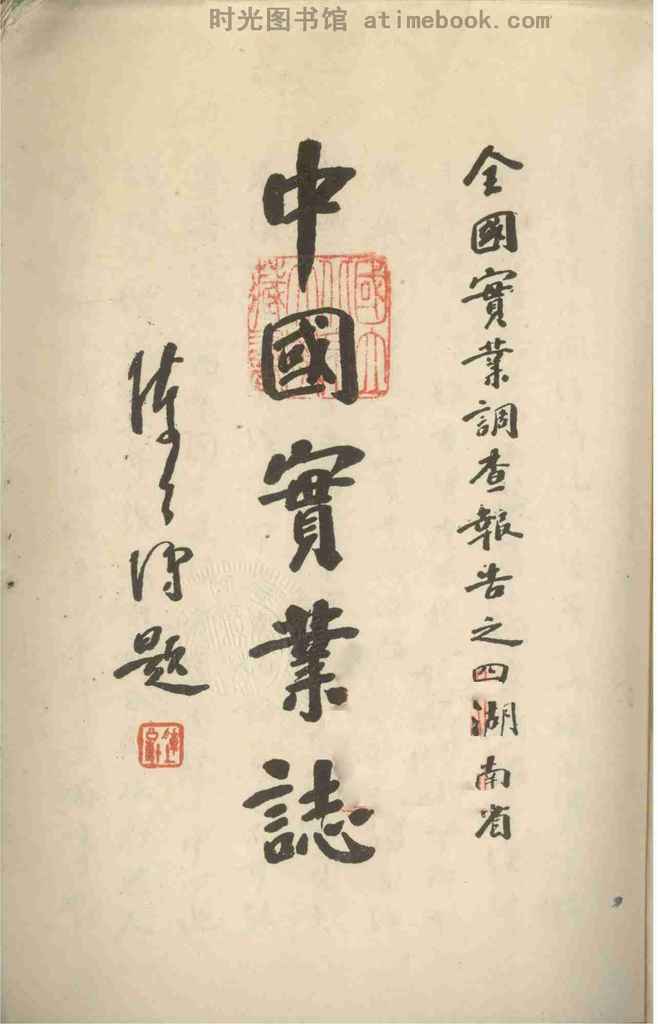 时光图书馆 atimebook.com
全國實業調查報告之四湖南省
中國實業誌
陳公博題